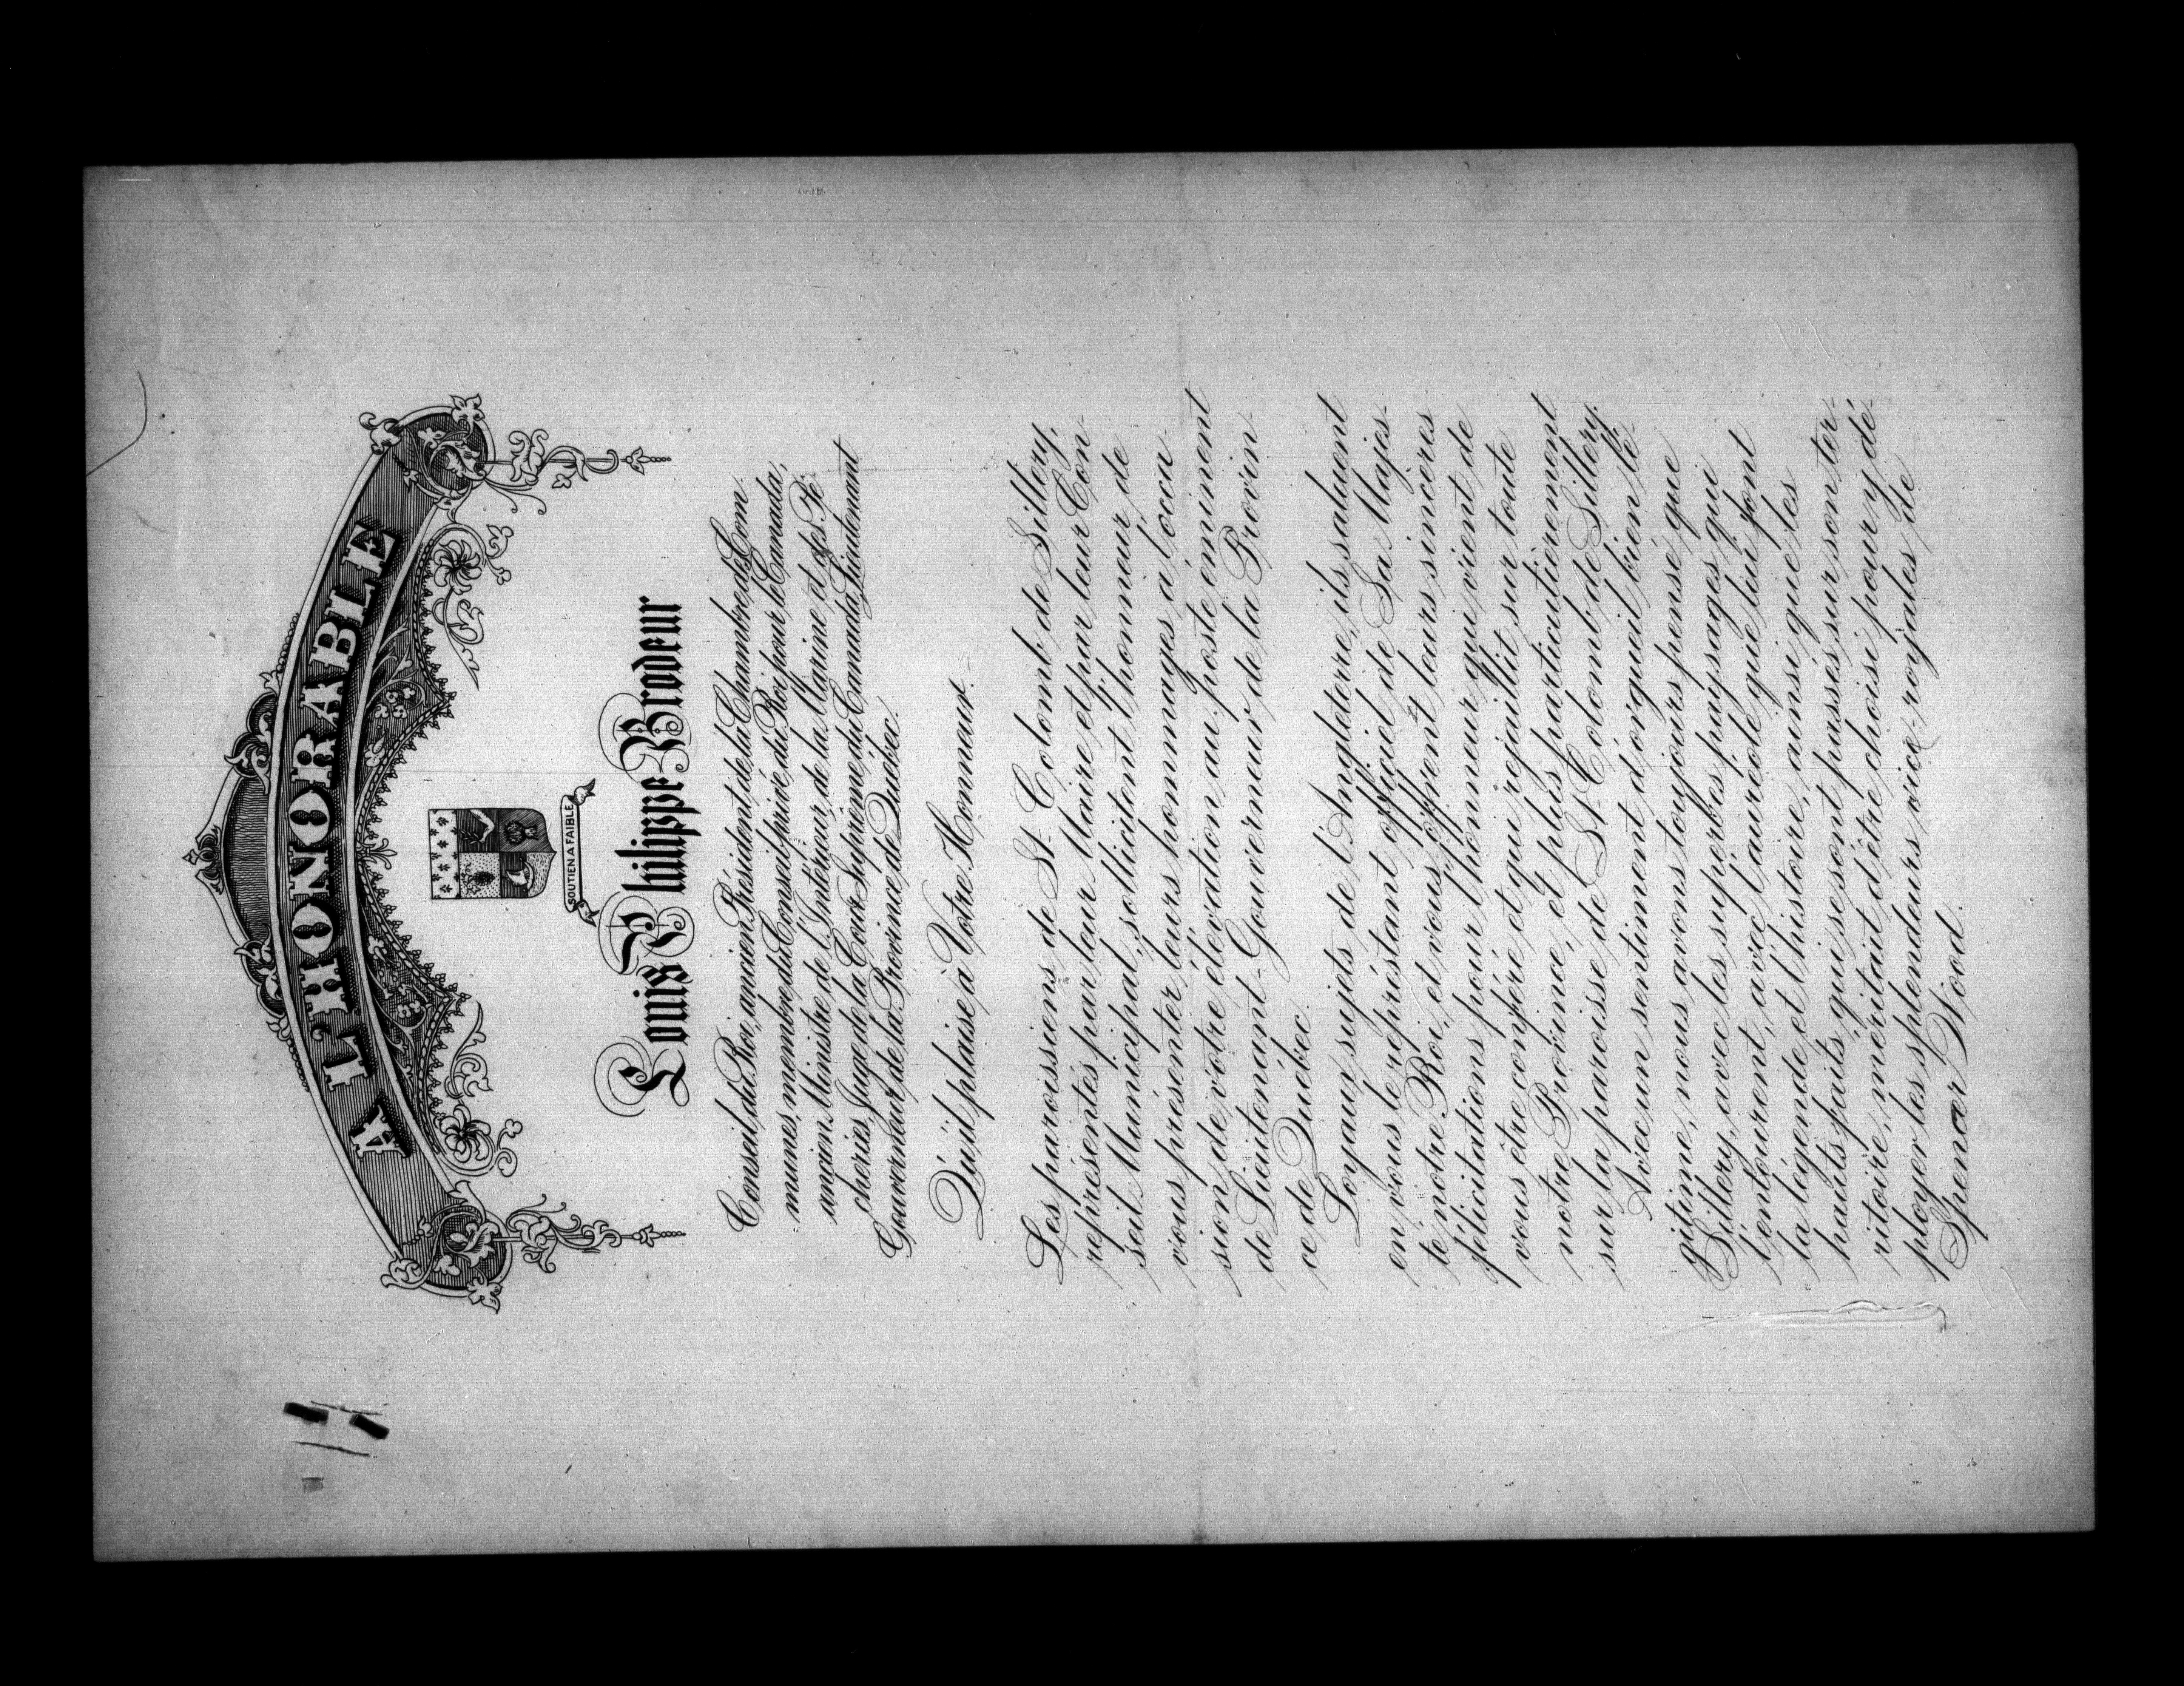 A L'HONORABLE
SOUTIEN A FAIBLE
Louis Philippe Brodeur
Conseil du Roi, ancien Président de la Chambre des Com
munes, membre du Conseil privé du Roi pour le Canada,
ancien Ministre de l'Intérieur, de la Marine et des Pê-
cheries, Juge de la Cour Suprême du Canada, Lieutenant
Gouverneur de la Province de Québec.
Qu'il plaise à Votre Honneur.
Les paroissiens de St. Colomb de Sillery,
représentés par leur Maire et par leur Con-
seil Municipal, sollicitent l'honneur de
vous présenter leurs hommages à l'occa-
sion de votre élévation au poste éminent
de Lieutenant-Gouverneur de la Provin-
ce de Québec.
Loyaux sujets de l'Angleterre, ils saluent
en vous le représtant officiel de Sa Majes-
té notre Roi, et vous offrent leurs sincères
félicitations pour l'honneur qui vient de
vous être conféré et qui rejaillit sur toute
notre Province, et plus particulièrement
sur la paroisse de St. Colomb de Sillery.
Avec un sentiment d'orgueil bien lé-
gitime, nous avons toujours pensé que
Sillery, avec les superbes paysages qui
l'entourent, avec l'auréole que lui font
la légende et l'histoire, ainsi que les
hauts faits qui se sont passés sur son ter-
ritoire, méritait d'être choisi pour y dé-
ployer les splendeurs vice-royales de
Spencer Wood.